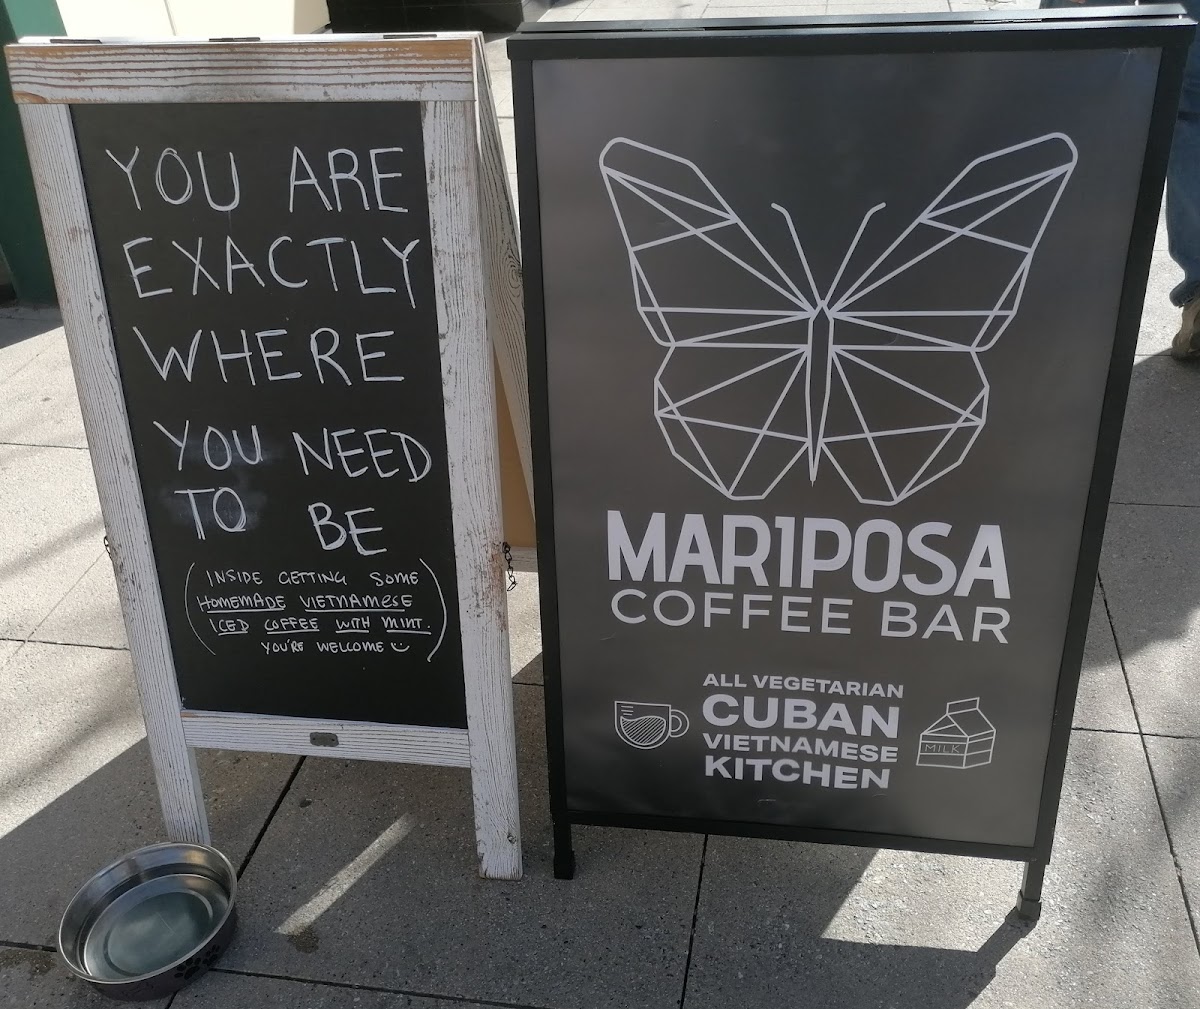 YOU ARE
EXACTLY
WHERE
YOU NEED
TO BE
(INSIDE GETTING SOME
HOMEMADE VIETNAMESE
ICED COFFEE WITH MINT.
YOU'RE WELCOME)
MARIPOSA
COFFEE BAR
ALL VEGETARIAN
CUBAN
VIETNAMESE
KITCHEN
MILK